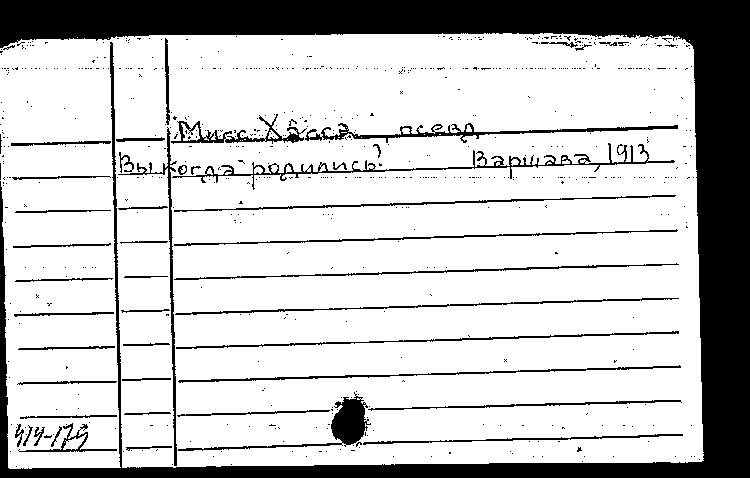 Мисс Хасса, псевд
Вы когда родились? Варшава, 1913